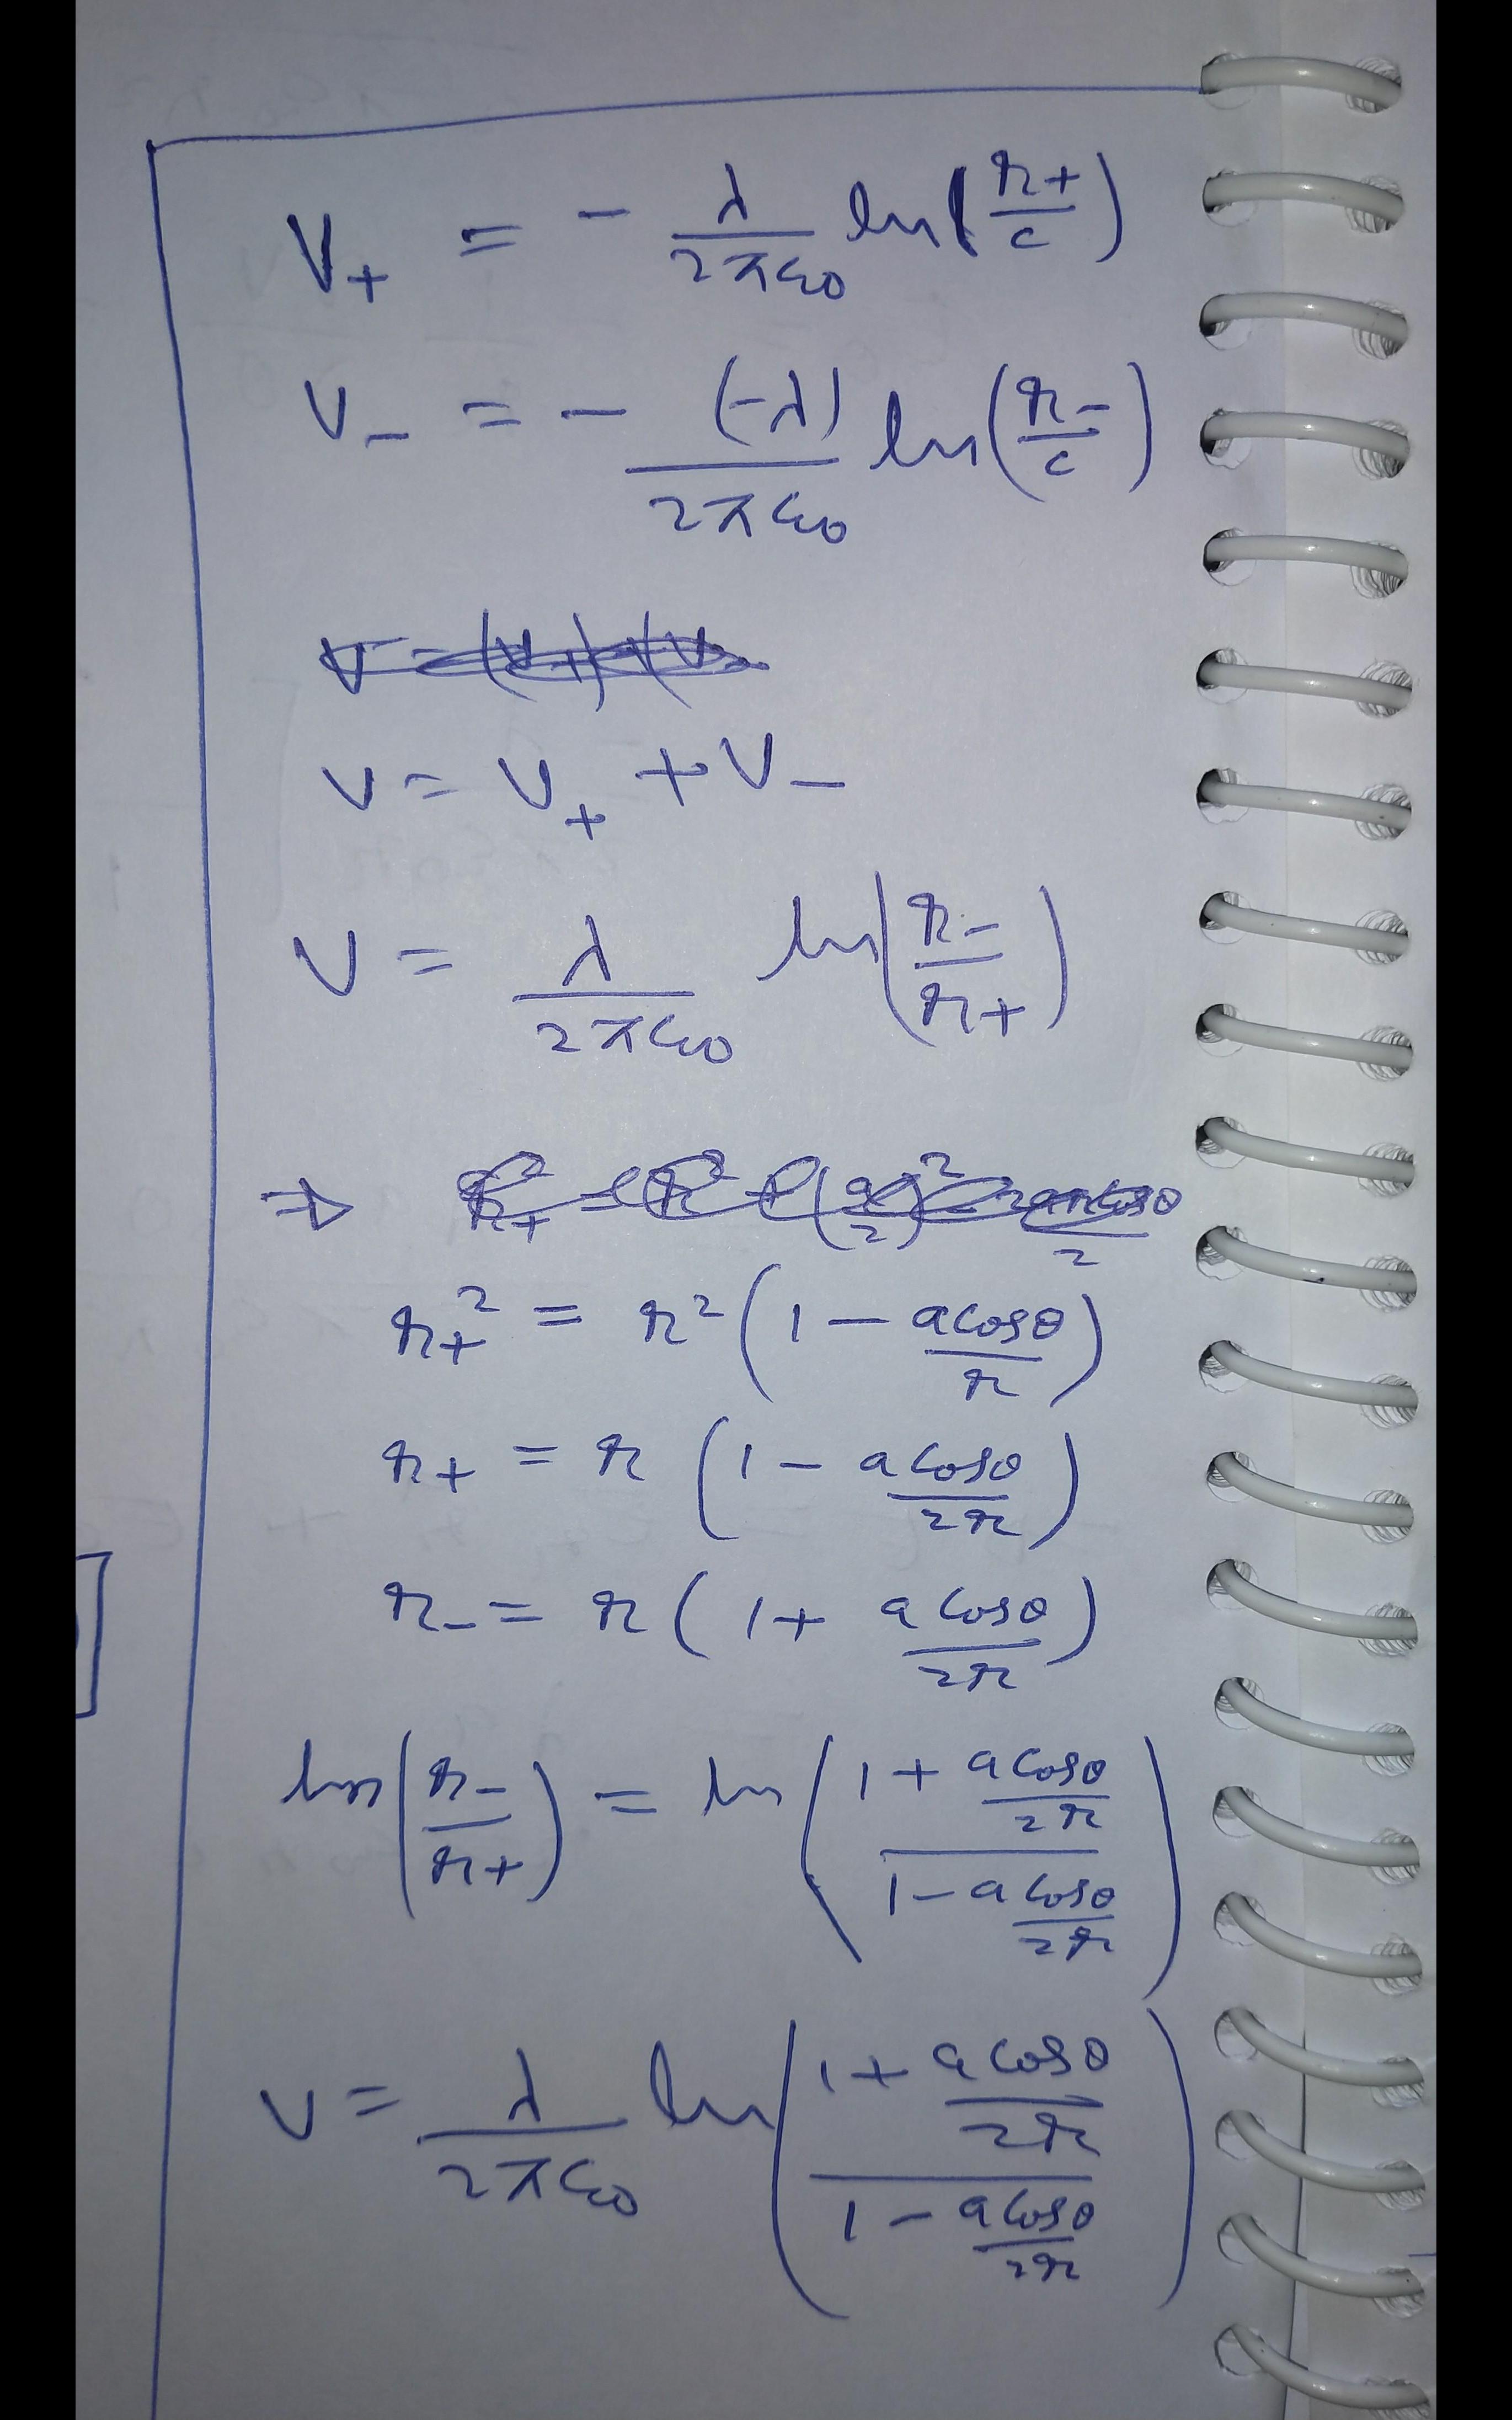 V₊ = - λ/2πε₀ ln(r₊/c)
V₋ = - (-λ)/2πε₀ ln(r₋/c)
V = V₊ + V₋
V = λ/2πε₀ ln(r₋/r₊)
⇒
r₊² = r²(1 - a cosθ/r)
r₊ = r (1 - a cosθ/2r)
r₋ = r (1 + a cosθ/2r)
ln(r₋/r₊) = ln((1 + a cosθ/2r)/(1 - a cosθ/2r))
V = λ/2πε₀ ln((1 + a cosθ/2r)/(1 - a cosθ/2r))